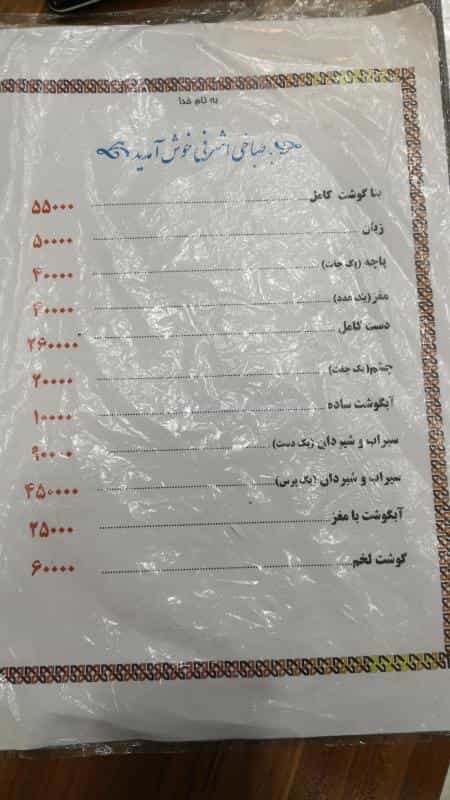 به نام خدا
به طباخی اشرفی خوش آمدید
بنا گوشت کامل ۵۵۰۰۰
زبان ۵۰۰۰۰
پاچه (یک جفت) ۴۰۰۰۰
مغز (یک عدد) ۴۰۰۰۰
دست کامل ۲۶۰۰۰۰
چشم (یک جفت) ۲۰۰۰۰
آبگوشت ساده ۱۰۰۰۰
سیراب و شیردان (یک دست) ۹۰۰۰۰
سیراب و شیردان (یک پرس) ۴۵۰۰۰۰
آبگوشت با مغز ۲۵۰۰۰
گوشت لخم ۶۰۰۰۰